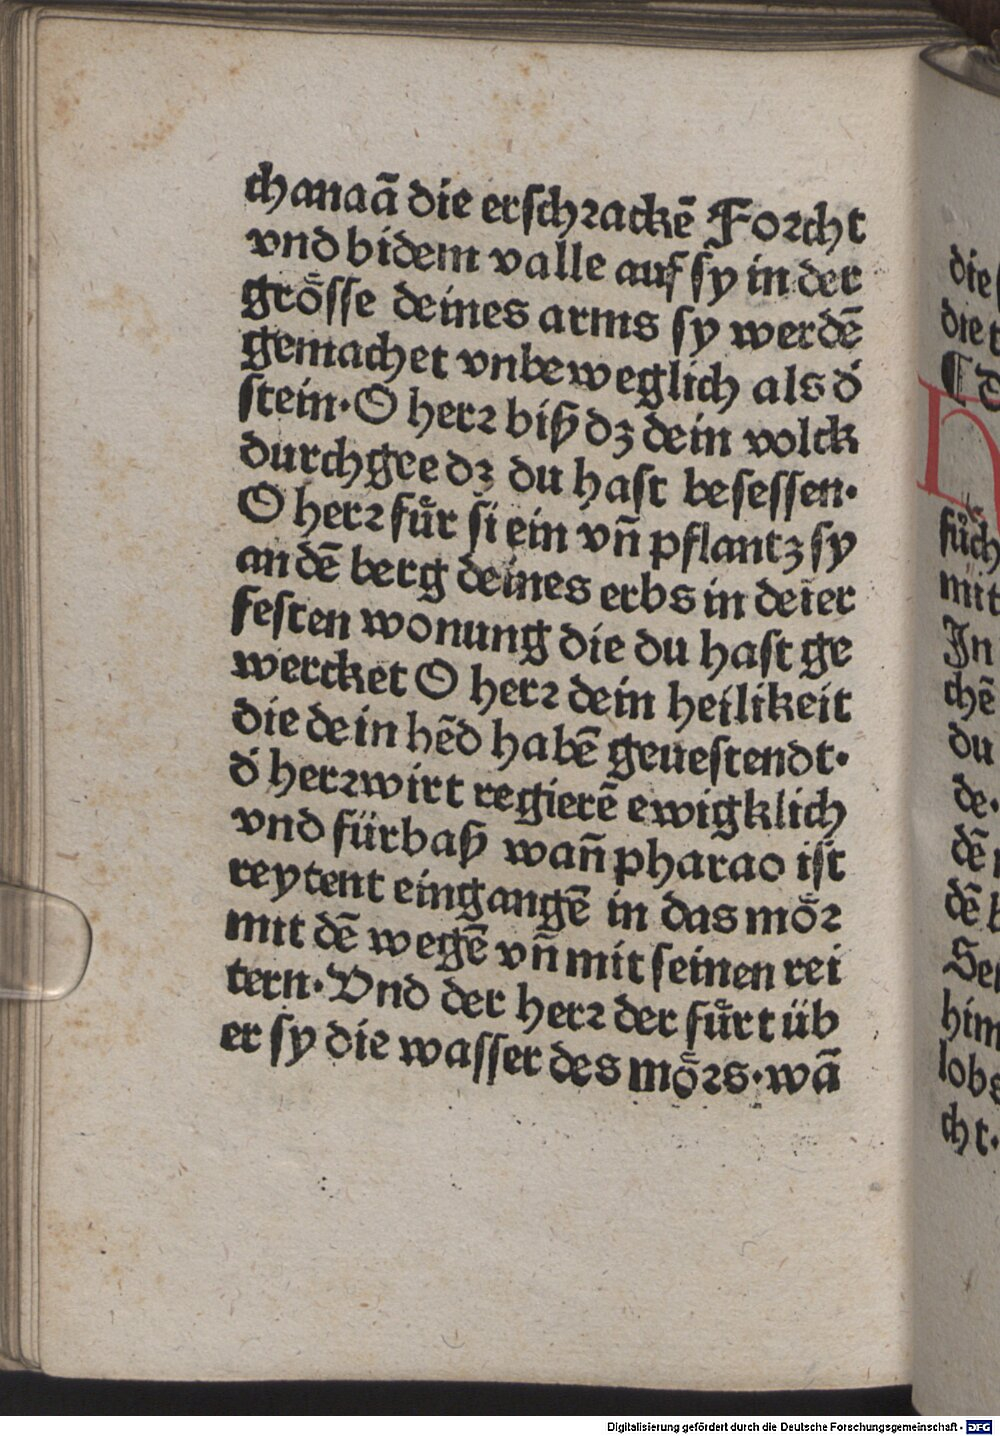 chanaā die erschrackē Forcht
vnd bidem valle auf sy in der
grȯ̈sse deines arms sy werdē
gemachet vnbeweglich als d̕
stein. O herr biß dz dein volck
durchgee dz du hast besessen.
O herr fu̇̈r si ein vn̄ pflantz sy
an dē berg deines erbs in deier
festen wonung die du hast ge
wercket O herr dein heilikeit
die dein hēd habē geuestendt.
d̕ herr wirt regierē ewigklich
vnd fürbaß wan̄ pharao ist
reytent eingangē in das mȯ̈r
mit dē wegē vn̄ mit seinen rei
tern. Vnd der herr der fu̇̈rt üb
er sy die wasser des mȯ̈rs. wā
die
die
füch
mit
In
chē
du
de.
dē
dē
him
lobs
cht.
Digitalisierung gefördert durch die Deutsche Forschungsgemeinschaft - DFG